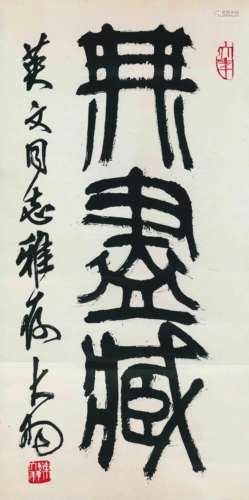 無盡藏
英文同志雅存大翔